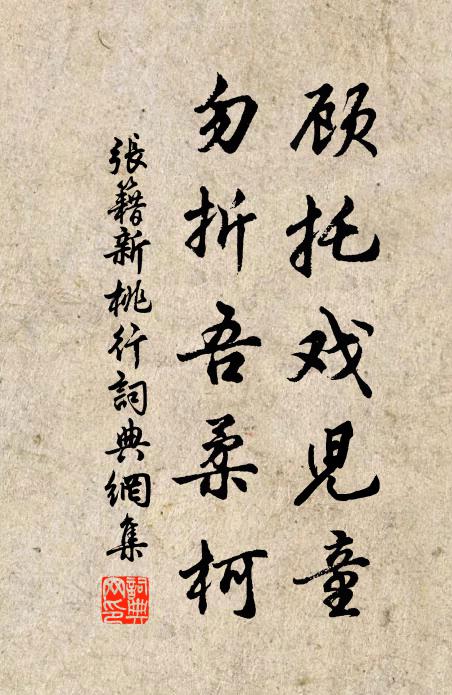 顾托戏兒童
勿折吾柔柯
張籍新桃行詞典網集
詞典網印